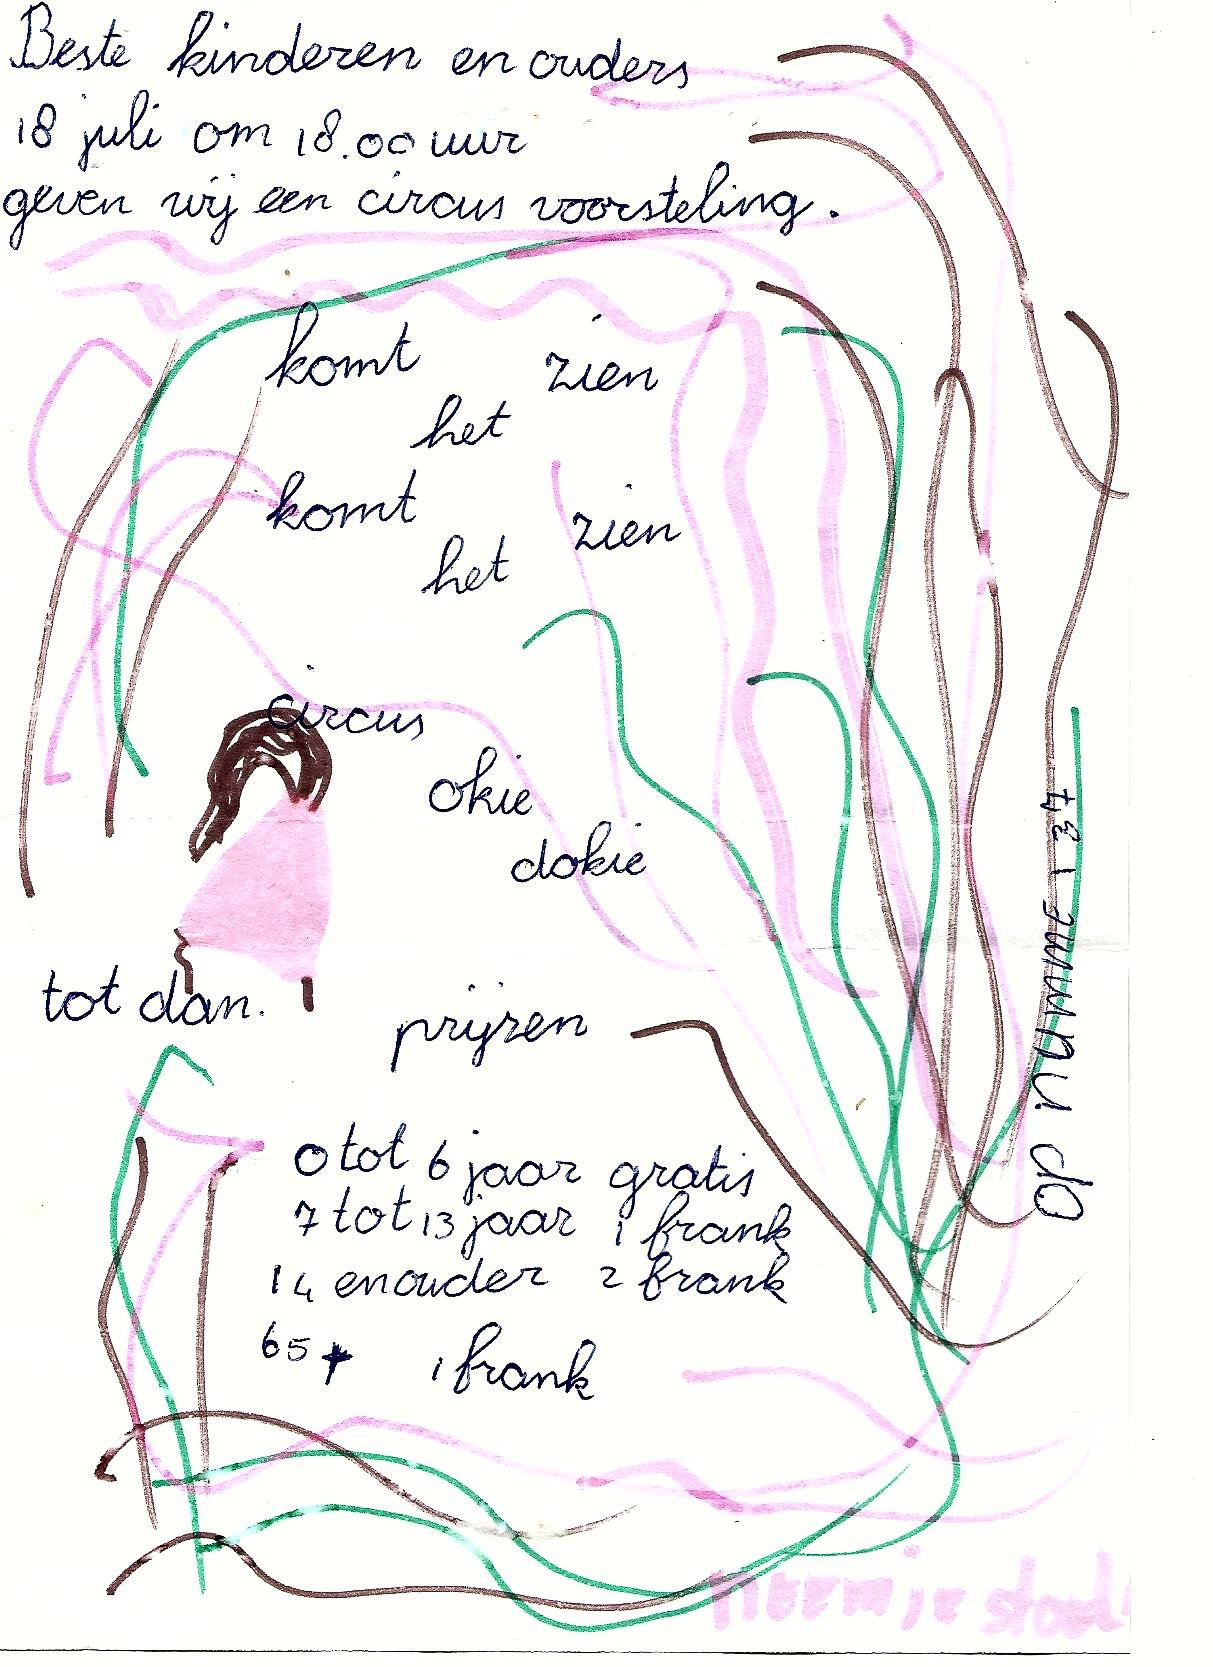 Beste kinderen en ouders
18 juli om 18.00 uur
geven wij een circus voorsteling.
komt zien
het
komt zien
het
circus
okie
dokie
tot dan.
prijzen
0 tot 6 jaar gratis
7 tot 13 jaar 1 frank
14 en ouder 2 frank
65+ 1 frank
op nummer 137
Neem je stoel